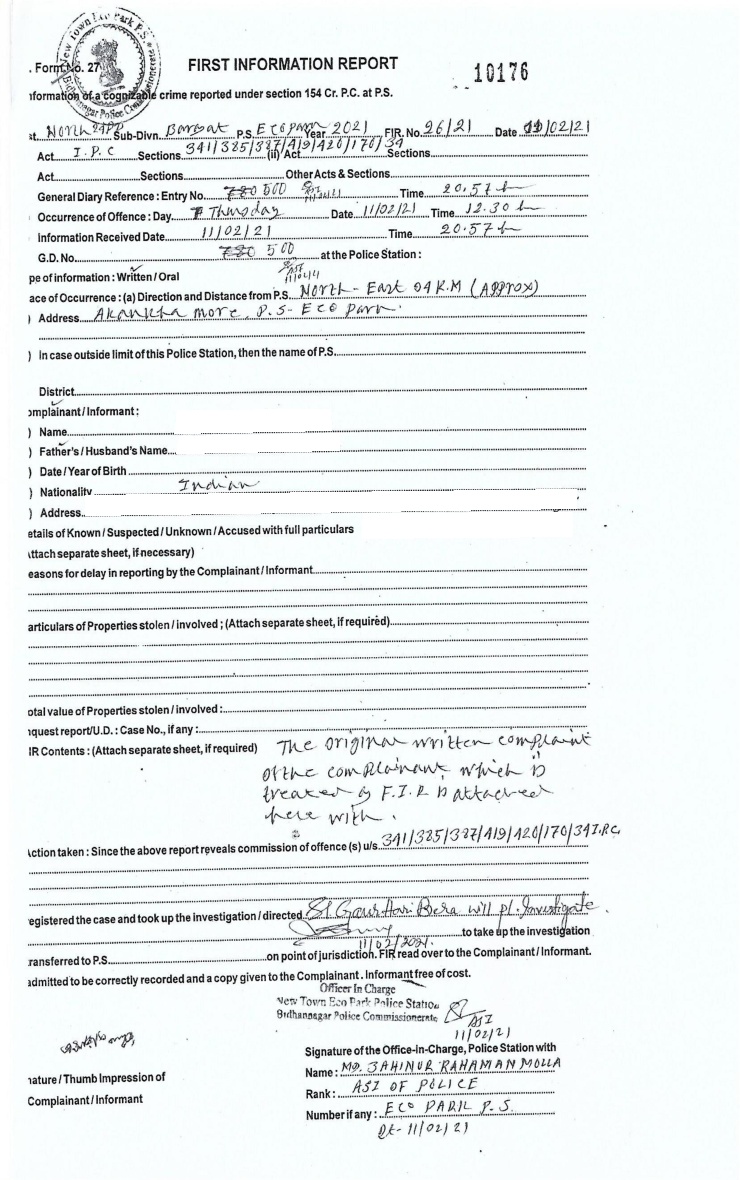 New Town Eco Park P.S.
Bidhannagar Police Commissionerate
. Form No. 27
FIRST INFORMATION REPORT
10176
nformation of a cognizable crime reported under section 154 Cr. P.C. at P.S.
st. North 24 Sub-Divn. Barasat P.S. Eco park Year 2021 FIR. No. 26/21 Date 11/02/21
Act I.P.C Sections 341/385/387/419/420/170/34 (ii) Act Sections
Act Sections Other Acts & Sections
General Diary Reference : Entry No. 500 Time 20.57 hr
ASI
11/02/21
Occurrence of Offence : Day. Thursday Date 11/02/21 Time 12.30 hr
Information Received Date 11/02/21 Time 20.57 hr
G.D. No. 500 at the Police Station :
ASI
11/02/21
pe of information : Written / Oral
ace of Occurrence : (a) Direction and Distance from P.S. North - East 04 K.M (Approx)
) Address Akankha more, P.S- Eco Park.
) In case outside limit of this Police Station, then the name of P.S.
District
omplainant / Informant :
) Name
) Father's / Husband's Name
) Date / Year of Birth
) Nationality Indian
) Address.
etails of Known / Suspected / Unknown / Accused with full particulars
ttach separate sheet, if necessary)
easons for delay in reporting by the Complainant / Informant
articulars of Properties stolen / involved ; (Attach separate sheet, if required)
otal value of Properties stolen / involved :
nquest report/U.D. : Case No., if any :
IR Contents : (Attach separate sheet, if required) The original written complaint
of the complainant, which is
treated as F.I.R is attached
here with.
ction taken : Since the above report reveals commission of offence (s) u/s. 341/385/387/419/420/170/34 I.P.C.
egistered the case and took up the investigation / directed SI Gour Hari Bera will pl. Investigate.
to take up the investigation
11/02/2021.
ransferred to P.S. on point of jurisdiction. FIR read over to the Complainant / Informant.
admitted to be correctly recorded and a copy given to the Complainant . Informant free of cost.
Officer In Charge
New Town Eco Park Police Station
Bidhannagar Police Commissionerate
ASI
11/02/21
Signature of the Office-In-Charge, Police Station with
Name : MD. JAHINUR RAHAMAN MOLLA
nature / Thumb Impression of
Rank : ASI OF POLICE
Complainant / Informant
Number if any : ECO PARK P.S.
Dt- 11/02/21